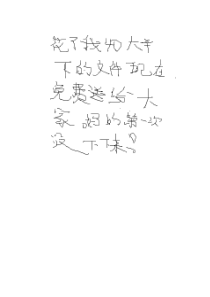 花了我40大羊
下的文件现在
免费送给大
家 妈的第一次
没下下来?